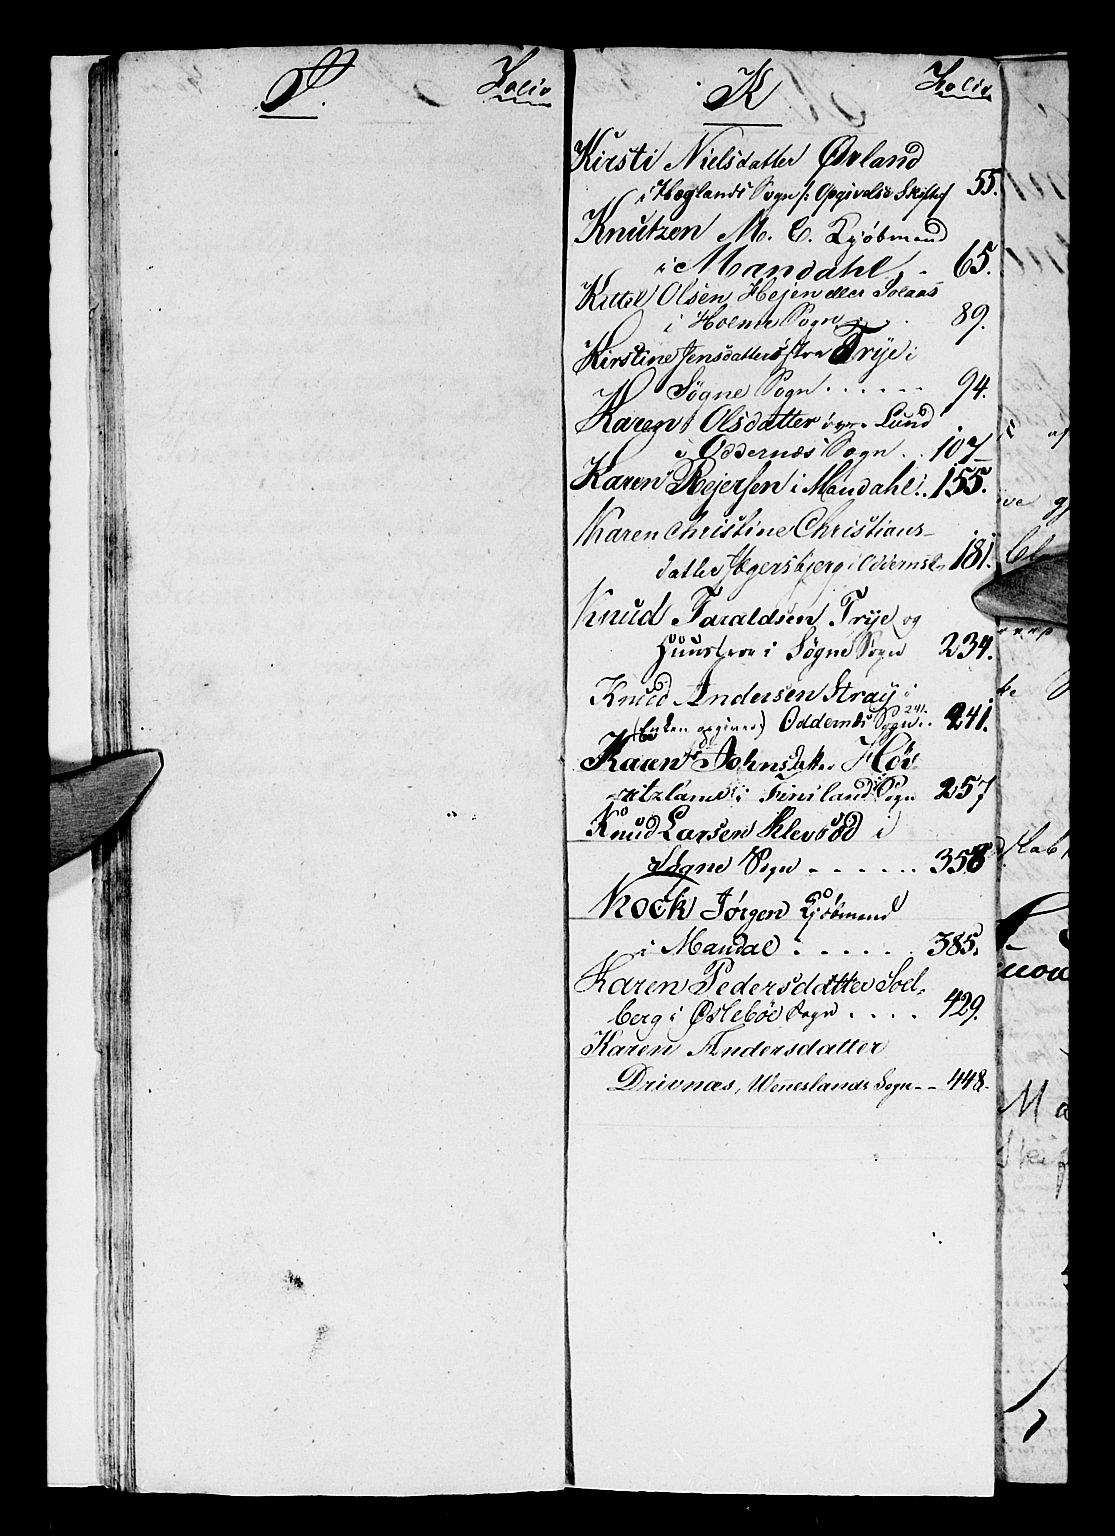 Folio
K
Folio
Kirsti Nielsdatter Øvland
i Høglands Sogn /: Opgivelse Skifte/ 55.
Knutzen M. C. Kjöbmand
i Mandahl 65.
Kittel Olsen Højen eller Solaas
i Holme Sogn 89.
Kirstine Jensdatter östre Trye i
Søgne Sogn 94.
Karen Olsdatter övre Lund
i Oddernæs Sogn 107
Karen Rejersen i Mandahl 155.
Karen Christine Christians-
datter Egersbjerg i 181.
Knud Taraldsen Trye og
Huustrue i Søgne Sogn 234.
Knud Andersen Stray i
(Enken opgiver) Oddernæs Sogn 241. 241.
Karen Johnsdatter
i Finsland Sogn 257
Knud Larsen Klevsöd i
Søgne Sogn 358
Kock Jørgen Kjöbmand
i Mandal 385.
Karen Pedersdatter Sod-
berg i Øslebøe Sogn 429.
Karen Andersdatter
Drivnæs, Weneslands Sogn 448.